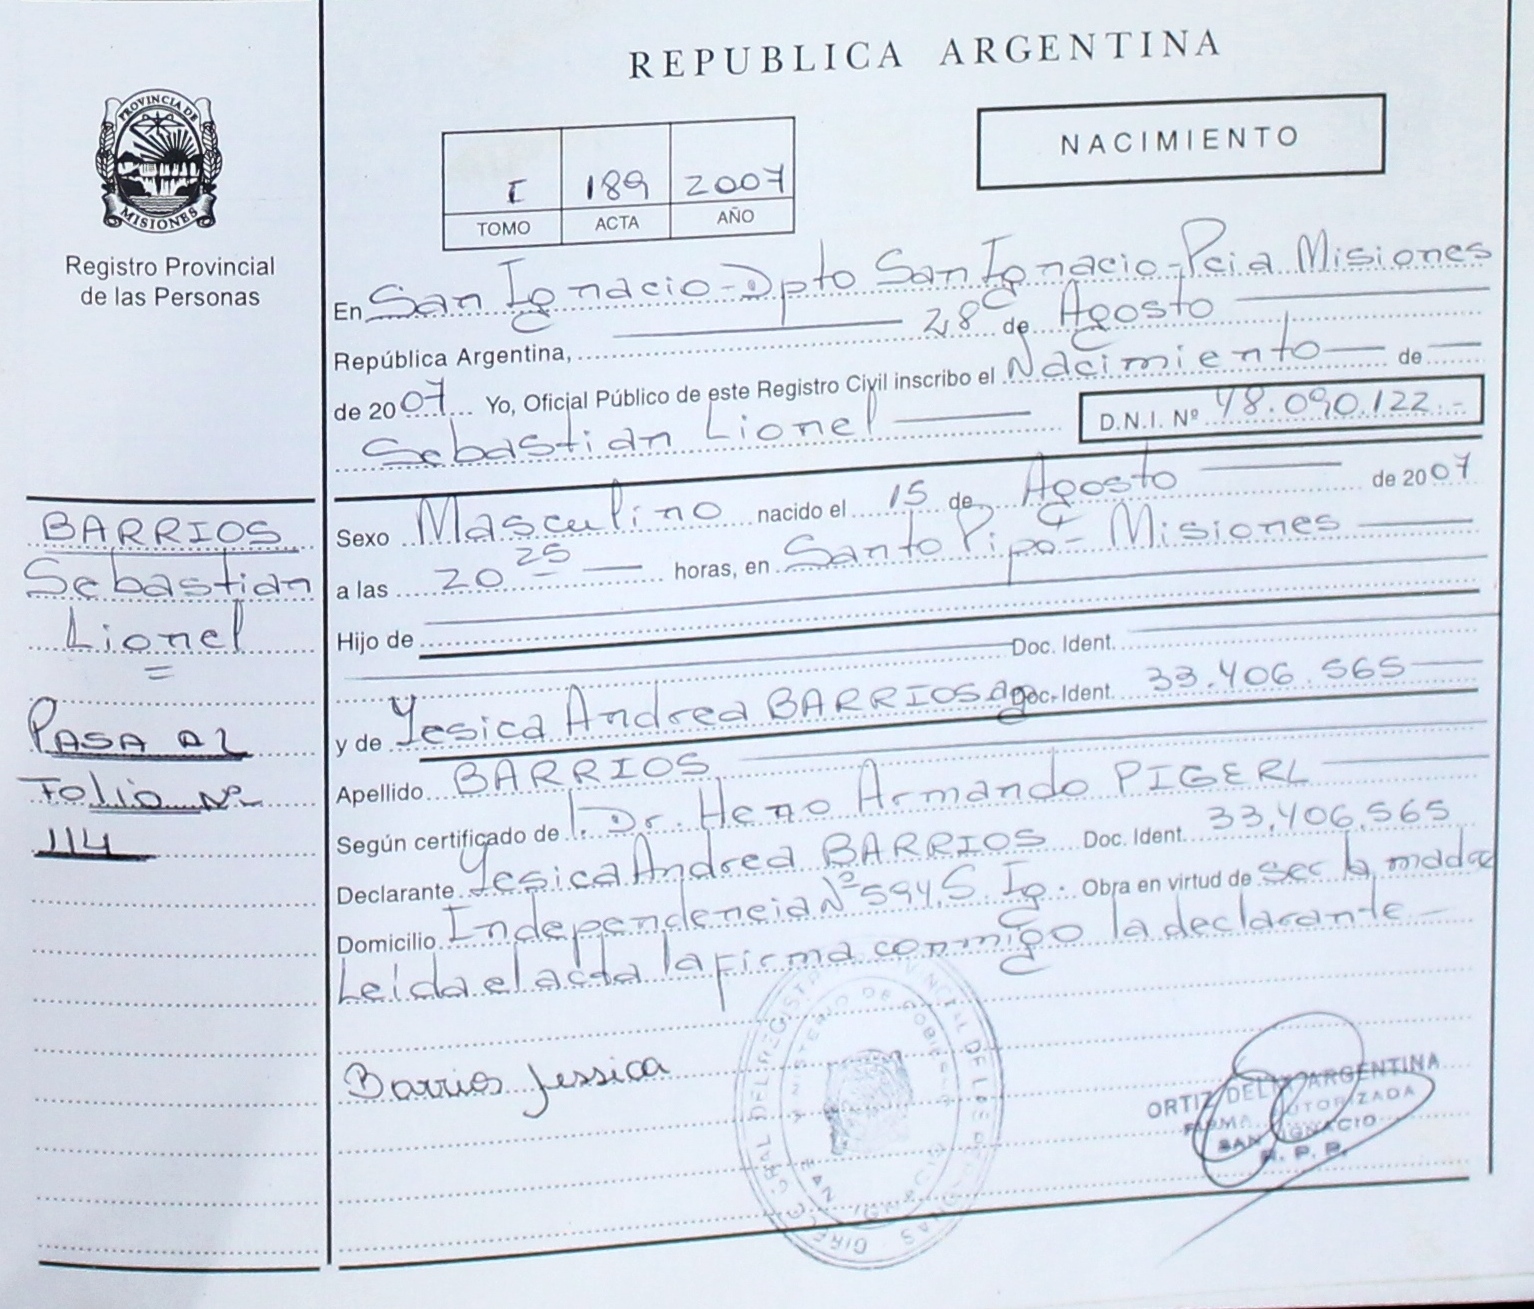 REPUBLICA ARGENTINA
NACIMIENTO
I 189 2007
TOMO ACTA AÑO
PROVINCIA DE
MISIONES
Registro Provincial
de las Personas
En San Ignacio-Dpto San Ignacio-Pcia Misiones
República Argentina, 28 de Agosto
de 2007 Yo, Oficial Público de este Registro Civil inscribo el Nacimiento de
Sebastian Lionel D.N.I. Nº 48.090.122.-
Sexo Masculino nacido el 15 de Agosto de 2007
a las 20 25 horas, en Santo Pipo - Misiones
Hijo de
Doc. Ident.
y de Yesica Andrea BARRIOS Doc. Ident. 33.406.565
Apellido BARRIOS
Según certificado de Dr. Heno Armando PIGERL
Declarante Yesica Andrea BARRIOS Doc. Ident. 33.406.565
Domicilio Independencia Nº 594, S. Ig. Obra en virtud de ser la madre
Leida el acta la firma conmigo la declarante -
Barrios Jessica
BARRIOS
Sebastian
Lionel
=
PASA AL
Folio Nº
114
MINISTERIO DE GOBIERNO
SAN IGNACIO
ORTIZ ARGENTINA
FIRMA AUTORIZADA
SAN IGNACIO
R. P. P.